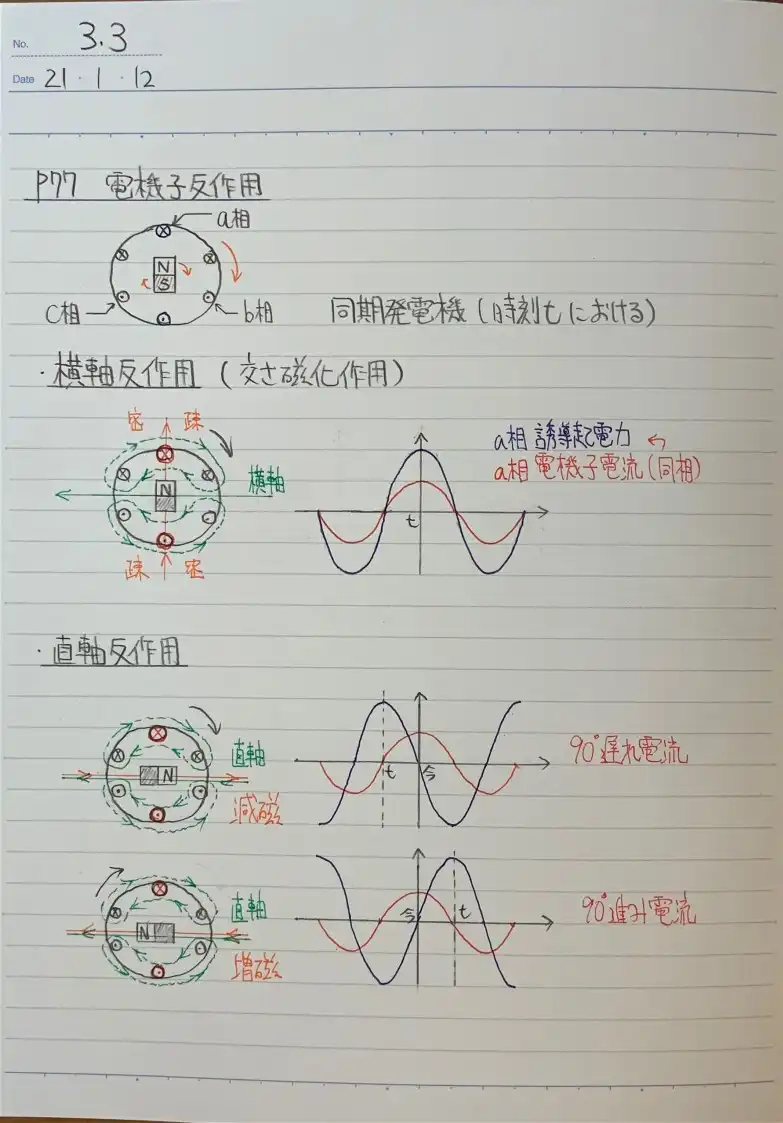 No. 3.3
Date 21・1・12
P77 電機子反作用
a相
N
S
C相
b相
同期発電機(時刻tにおける)
・横軸反作用 (交さ磁化作用)
密 疎
N
横軸
疎 密
t
a相 誘導起電力
a相 電機子電流(同相)
・直軸反作用
N
直軸
減磁
t 今
90°遅れ電流
N
直軸
増磁
今 t
90°進み電流